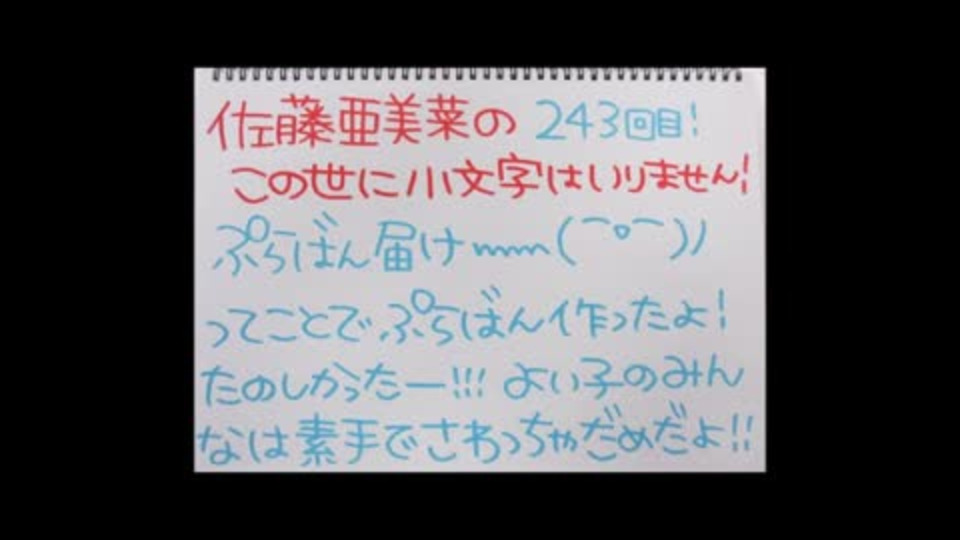 佐藤亜美菜の 243回目!
この世に小文字はいりません!
ぷらばん届けmmm(￣o￣)ﾉ
ってことでぷらばん作ったよ!
たのしかったー!!! よい子のみん
なは素手でさわっちゃだめだよ!!